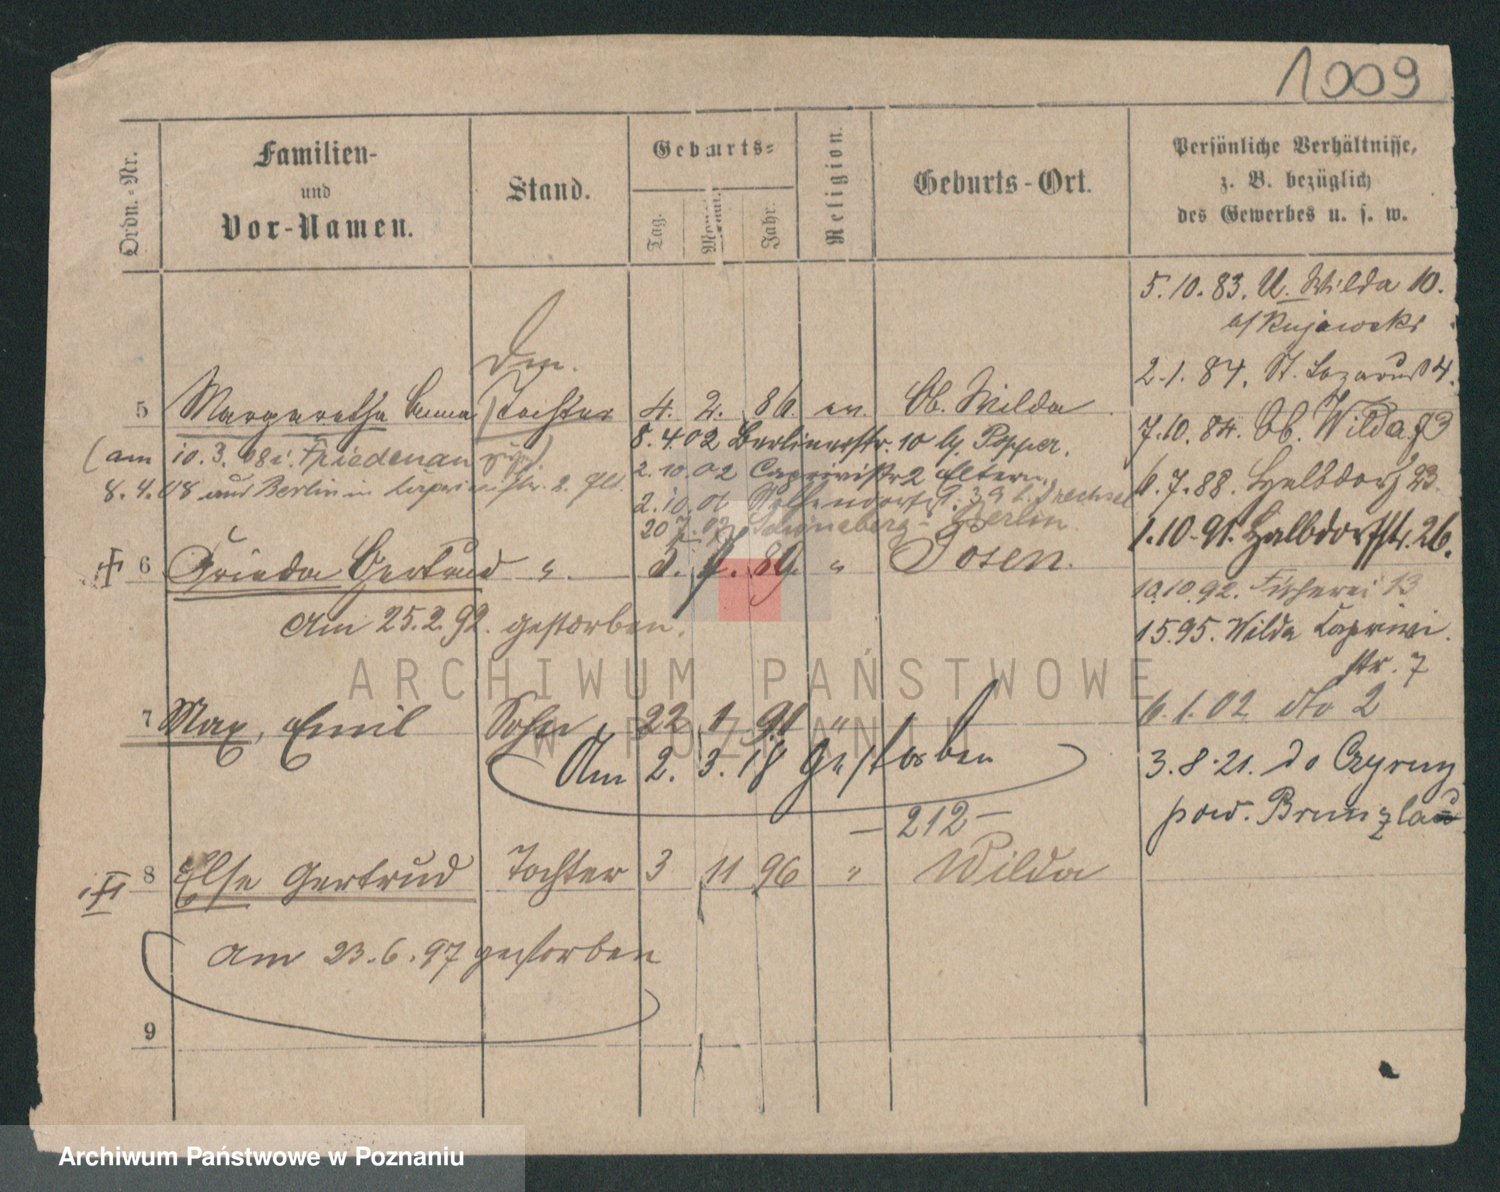 1009
Ordn.-Nr.
Familien-
und
Vor-Namen.
Stand.
Geburts-
Tag.
Monat.
Jahr.
Religion.
Geburts-Ort.
Persönliche Verhältnisse,
z. B. bezüglich
des Gewerbes u. s. w.
5.10.83. U. Wilda 10.
b/ Kujawski
2.1.84. St. Lazarus 4.
5 Margarethe Emma Tochter 4. 2. 86. ev. Ob. Wilda
7.10.84. Ob. Wilda 73
8.4.02 Berlinerstr. 10 b/ Popper.
(am 10.3.08 i. Friedenau
2.10.02 Caprivistr 2 Eltern
6.7.88. Halbdorf 23
8.4.08 aus Berlin in Caprivistr. 2.
2.10.06
20 7 09 Schöneberg-Berlin.
1.10.91. Halbdorfstr. 26.
6 Frieda Gertrud " 5. 7. 89. " Posen.
10.10.92. Fischerei 13
Am 25.2.92. gestorben.
1 5.95. Wilda Caprivi
str. 7
ARCHIWUM PAŃSTWOWE
W POZNANIU
7 Max, Emil Sohn 22 1 91 "
6.1.02 dto 2
Am 2. 3. 18 gestorben
3.8.21. do
pow.
– 212 –
8 Else Gertrud Tochter 3 11 96 " Wilda
am 23.6.97 gestorben
9
Archiwum Państwowe w Poznaniu